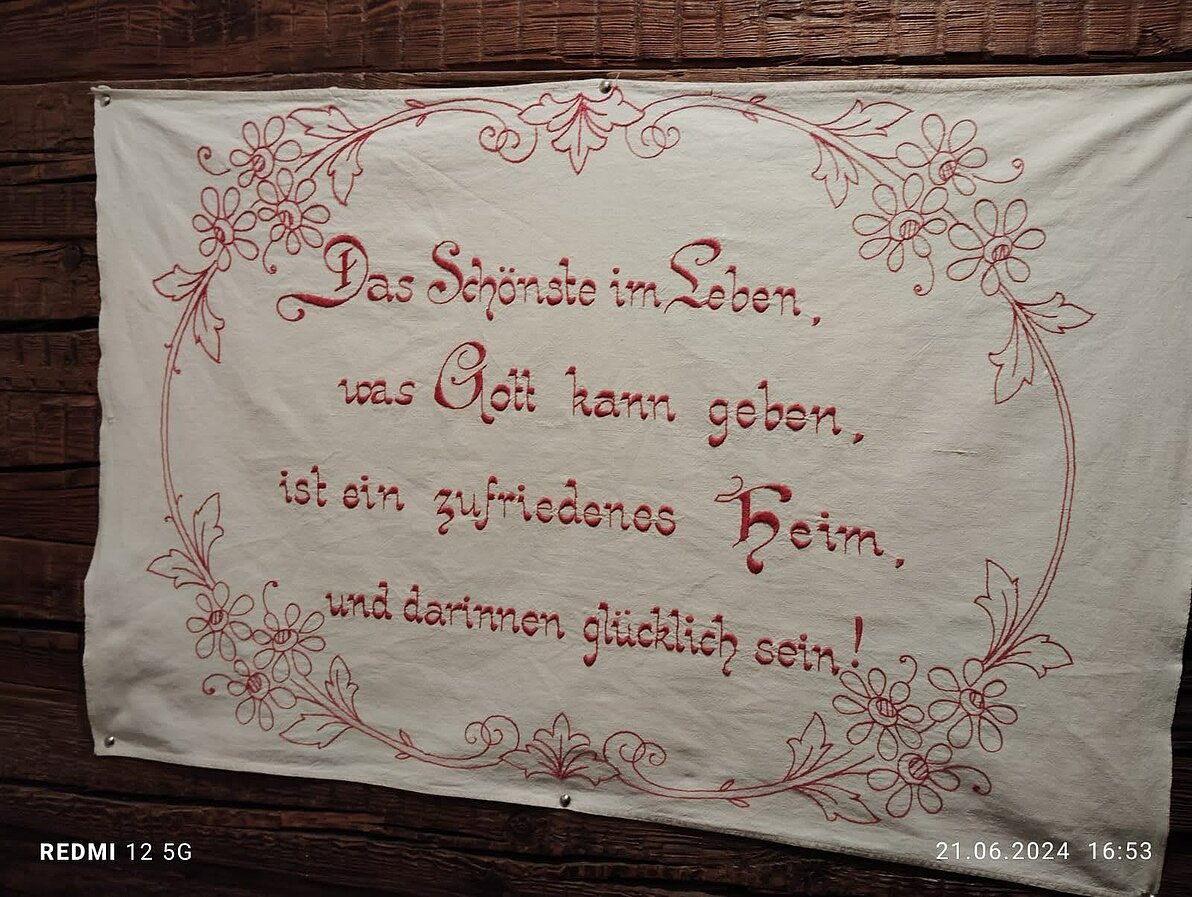 Das Schönste im Leben,
was Gott kann geben,
ist ein zufriedenes Heim,
und darinnen glücklich sein!
REDMI 12 5G
21.06.2024 16:53